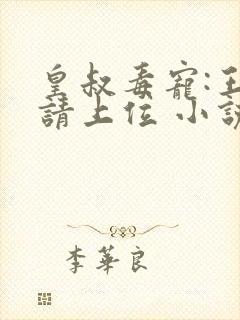 皇叔毒寵:王
請上位 小說
李華良